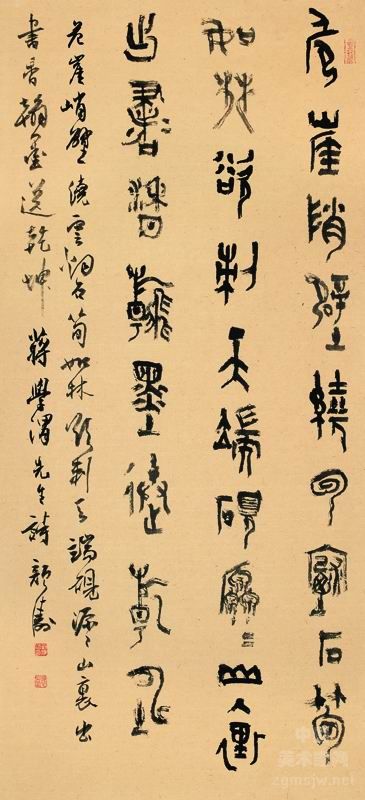 危崖峭壁繞雲洞石筍
如林欲刺天端硯源〻山裏
出書香翰墨送乾坤
危崖峭壁繞雲洞石筍如林欲刺天端硯源〻山裏出
書香翰墨送乾坤 蔣學渭先生詩
美术家网
zgmsjw.net